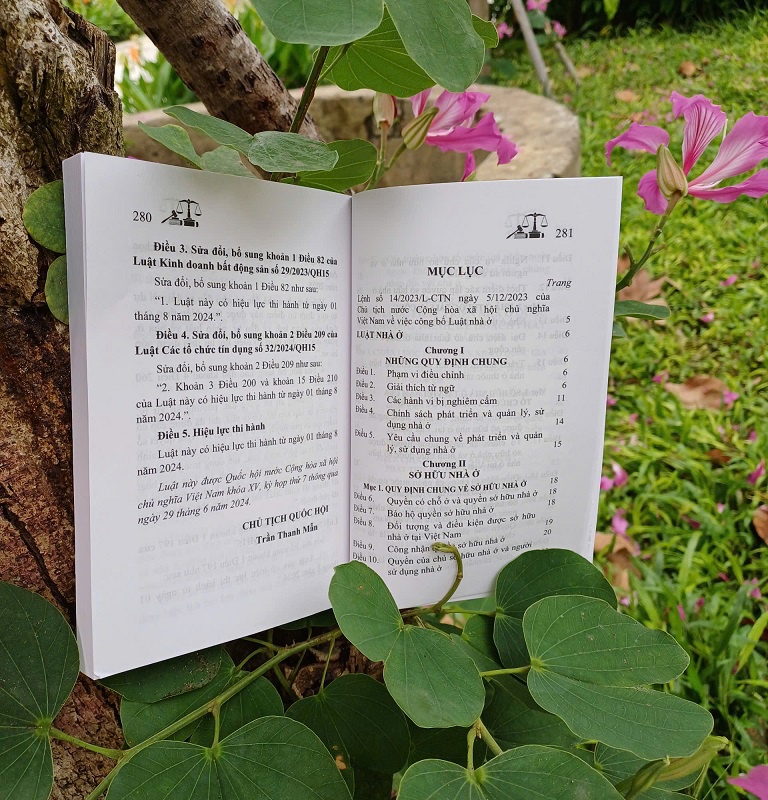 280
Điều 3. Sửa đổi, bổ sung khoản 1 Điều 82 của
Luật Kinh doanh bất động sản số 29/2023/QH15
Sửa đổi, bổ sung khoản 1 Điều 82 như sau:
“1. Luật này có hiệu lực thi hành từ ngày 01
tháng 8 năm 2024.”.
Điều 4. Sửa đổi, bổ sung khoản 2 Điều 209 của
Luật Các tổ chức tín dụng số 32/2024/QH15
Sửa đổi, bổ sung khoản 2 Điều 209 như sau:
“2. Khoản 3 Điều 200 và khoản 15 Điều 210
của Luật này có hiệu lực thi hành từ ngày 01 tháng 8
năm 2024.”.
Điều 5. Hiệu lực thi hành
Luật này có hiệu lực thi hành từ ngày 01 tháng 8
năm 2024.
Luật này được Quốc hội nước Cộng hòa xã hội
chủ nghĩa Việt Nam khóa XV, kỳ họp thứ 7 thông qua
ngày 29 tháng 6 năm 2024.
CHỦ TỊCH QUỐC HỘI
Trần Thanh Mẫn
281
MỤC LỤC
Trang
Lệnh số 14/2023/L-CTN ngày 5/12/2023 của
Chủ tịch nước Cộng hòa xã hội chủ nghĩa
Việt Nam về việc công bố Luật nhà ở 5
LUẬT NHÀ Ở 6
Chương I
NHỮNG QUY ĐỊNH CHUNG 6
Điều 1. Phạm vi điều chỉnh 6
Điều 2. Giải thích từ ngữ 6
Điều 3. Các hành vi bị nghiêm cấm 11
Điều 4. Chính sách phát triển và quản lý, sử
dụng nhà ở 14
Điều 5. Yêu cầu chung về phát triển và quản
lý, sử dụng nhà ở 15
Chương II
SỞ HỮU NHÀ Ở 18
Mục 1. QUY ĐỊNH CHUNG VỀ SỞ HỮU NHÀ Ở 18
Điều 6. Quyền có chỗ ở và quyền sở hữu nhà ở 18
Điều 7. Bảo hộ quyền sở hữu nhà ở 18
Điều 8. Đối tượng và điều kiện được sở hữu
nhà ở tại Việt Nam 19
Điều 9. Công nhận sở hữu nhà ở 20
Điều 10. Quyền của chủ sở hữu nhà ở và người
sử dụng nhà ở